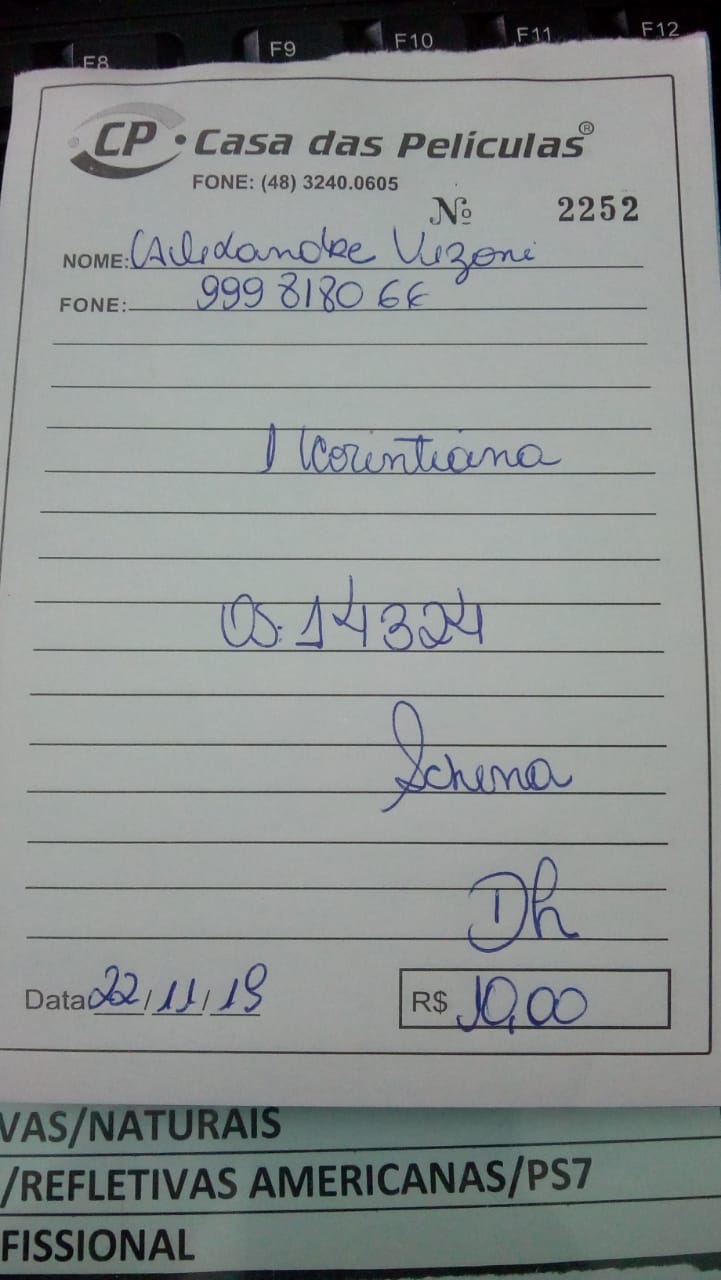 F8 F9 F10 F11 F12
CP • Casa das Películas®
FONE: (48) 3240.0605
Nº 2252
NOME: Alexandre Vizoni
FONE: 999 8180 66
1 Corintiana
OS: 14324
Schena
Dh
Data 22/11/19 R$ 10,00
VAS/NATURAIS
/REFLETIVAS AMERICANAS/PS7
FISSIONAL